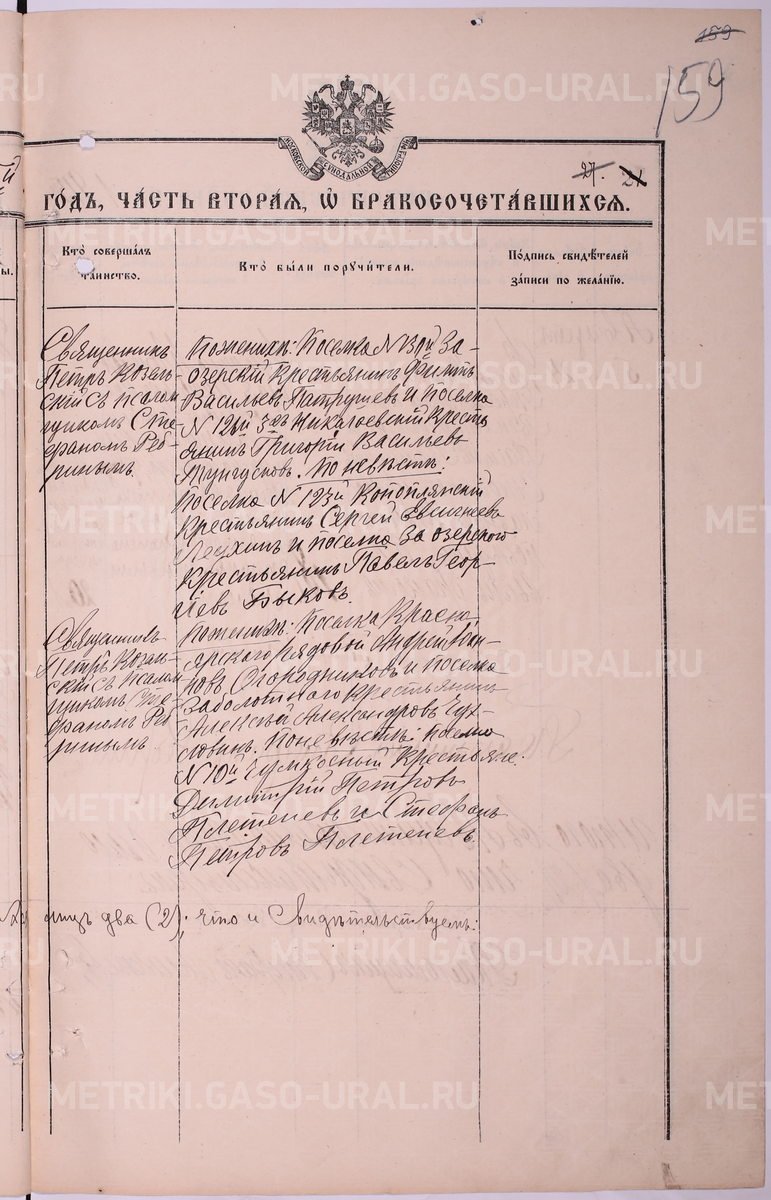 159
159
МОСКОВСКОЙ СИНОДАЛЬНОЙ ТИПОГРАФІИ
27. 21
ГО́ДЪ, ЧА́СТЬ ВТОРА́Я, Ѡ҆ БРАКОСОЧЕТА́ВШИХСЯ.
Кто̀ соверша́лъ
та́инство.
Кто̀ бы́ли поручи́тели.
По́дпись свидѣ́телей
за́писи по жела́нію.
Священникъ
Петръ Козель-
скій съ псалом
щикомъ Сте-
фаномъ Реб-
ринымъ.
По женихѣ: Поселка N 130й За-
озерскій Крестьянинъ
Васильевъ Патрушевъ и Поселка
N 126й Николаевскій Кресть
янинъ Григорій Васильевъ
Тунгусковъ. По невѣстѣ:
Поселка N 123й Конопляновскій
Крестьянинъ Сергей
и поселка За озерского
Крестьянинъ Павелъ Геор-
гіевъ Быковъ.
Священникъ
Петръ
скій съ псалом
щикомъ Сте
фаномъ Реб
ринымъ.
По женихѣ: Поселка Красно-
ярского рядовой Андрей Ива-
новъ Огородниковъ и Поселка
Заболотнаго крестьянинъ
Алексѣй Александровъ
По невѣстѣ: поселка
N 10й Крестьяне:
Димитрій Петровъ
Плетеневъ и Стефанъ
Петровъ Плетеневъ.
лицъ два (2); что и свидѣтельствуемъ:
METRIKI.GASO-URAL.RU